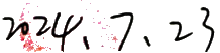 2024、7、23